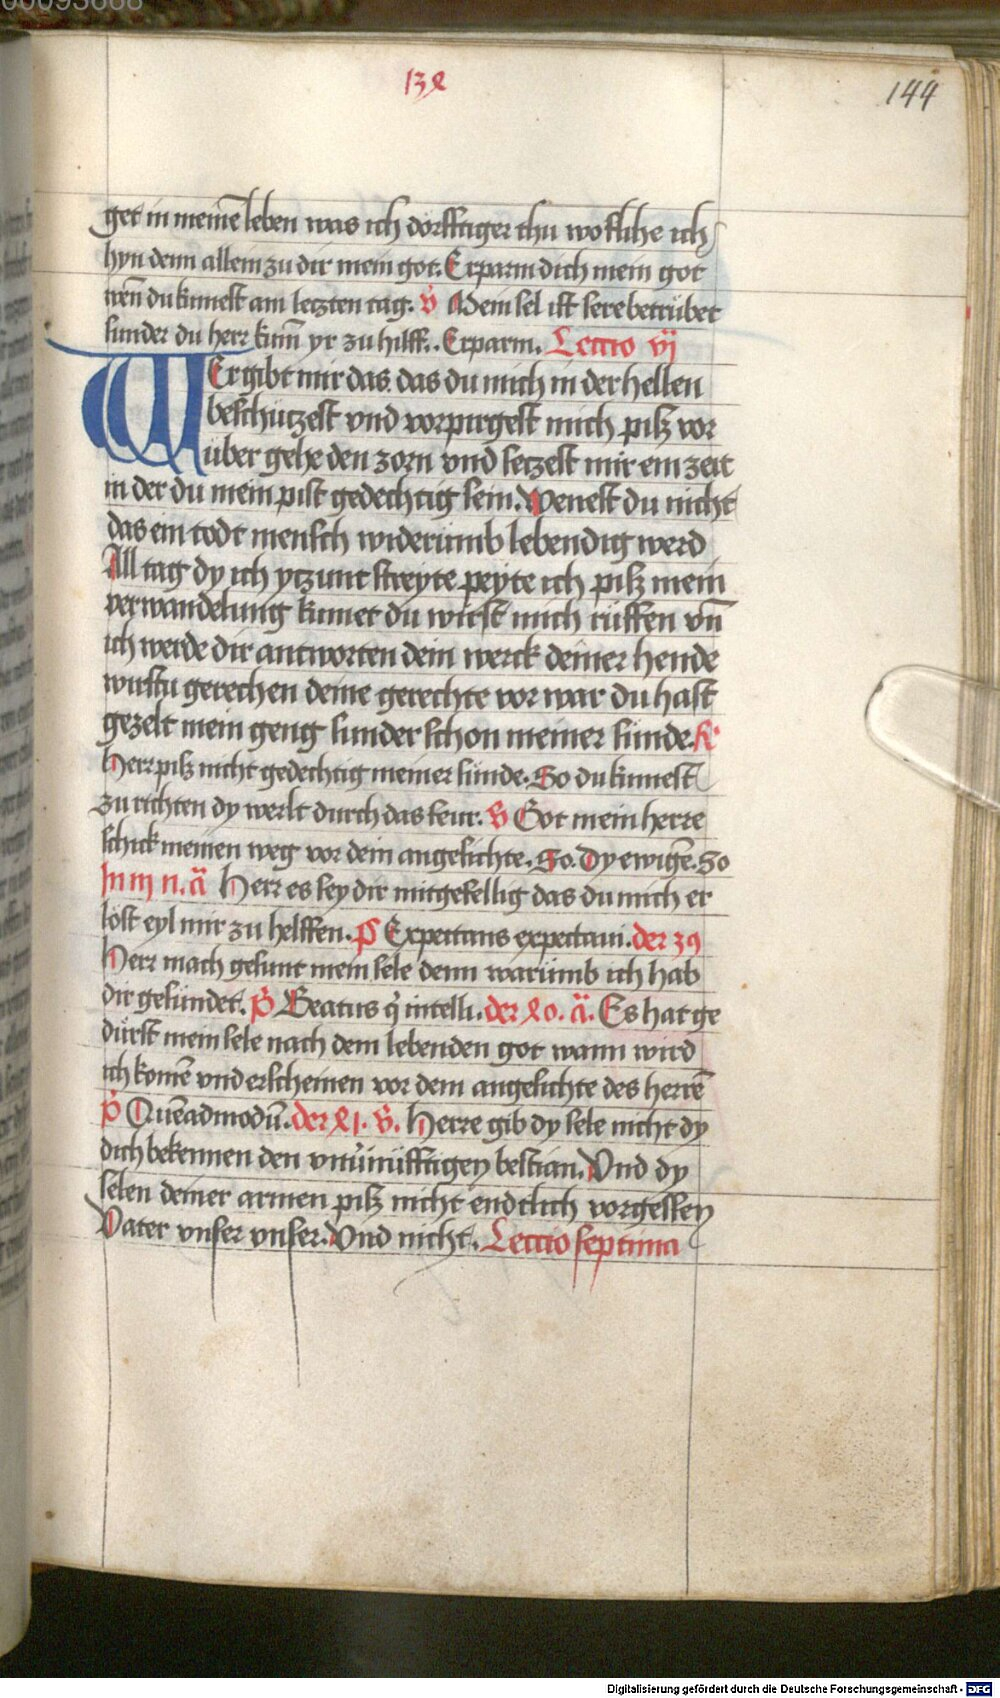 00093668
134
144
get in meinē leben was ich dorfftiger thu wo flihe ich
hyn denn allein zu dir mein got. Erparm dich mein got
wen̄ du kumest am letzten tag. v̇ Mein sel ist sere betrübet
sunder du herr kum̄ yr zu hilff. Erparm. Lectio vj
Wer gibt mir das das du mich in der hellen
beschutzest vnd vorpirgest mich pisz vor
über gehe den zorn vnd setzest mir ein zeit
in der du mein pist gedechtig sein. Wenest du nicht
das ein todt mensch widerumb lebendig werd
All tag dy ich ytzunt streyte peyte ich pisz mein
verwandelung kumet du wirst mich rüffen vn̄
ich werde dir antworten dein werck deiner hende
wirstu gerechen deine gerechte vor war du hast
gezelt mein geng sunder schon meiner sunde. R
Herr pisz nicht gedechtig meiner sünde. So du kumest
zu richten dy werlt durch das feur. V Got mein herre
schick meinen weg vor dein angesichte. So. Dy ewigē. So
In iij n. ā Herr es sey dir mitgefellig das du mich er
löst eyl mir zu helffen. ps Expectans expectaui. der 39
Herr mach gesunt mein sele denn warümb ich hab
dir gesündet. ps Beatus q̇ intelli. der 40. ā. Es hat ge
dürst mein sele nach dem lebenden got wann wird
ich komē vnd erscheinen vor dem angesichte des herrē
ps Quēadmodū. der 41. V. Herre gib dy sele nicht dy
dich bekennen den vnuernüfftigen bestian. Vnd dy
selen deiner armen pisz nicht endtlich vorgessen
Vater vnser vnser. Vnd nicht. Lectio septima
Digitalisierung gefördert durch die Deutsche Forschungsgemeinschaft - DFG